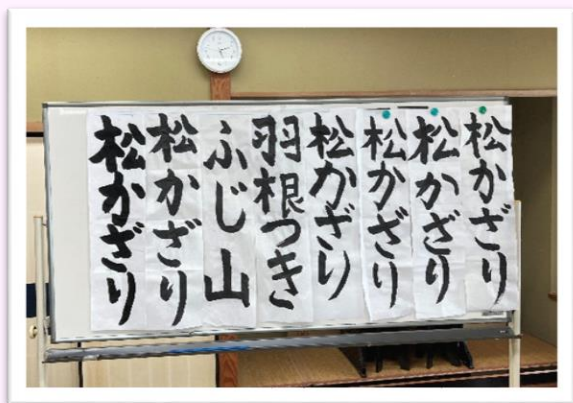 松かざり
松かざり
松かざり
松かざり
羽根つき
ふじ山
松かざり
松かざり